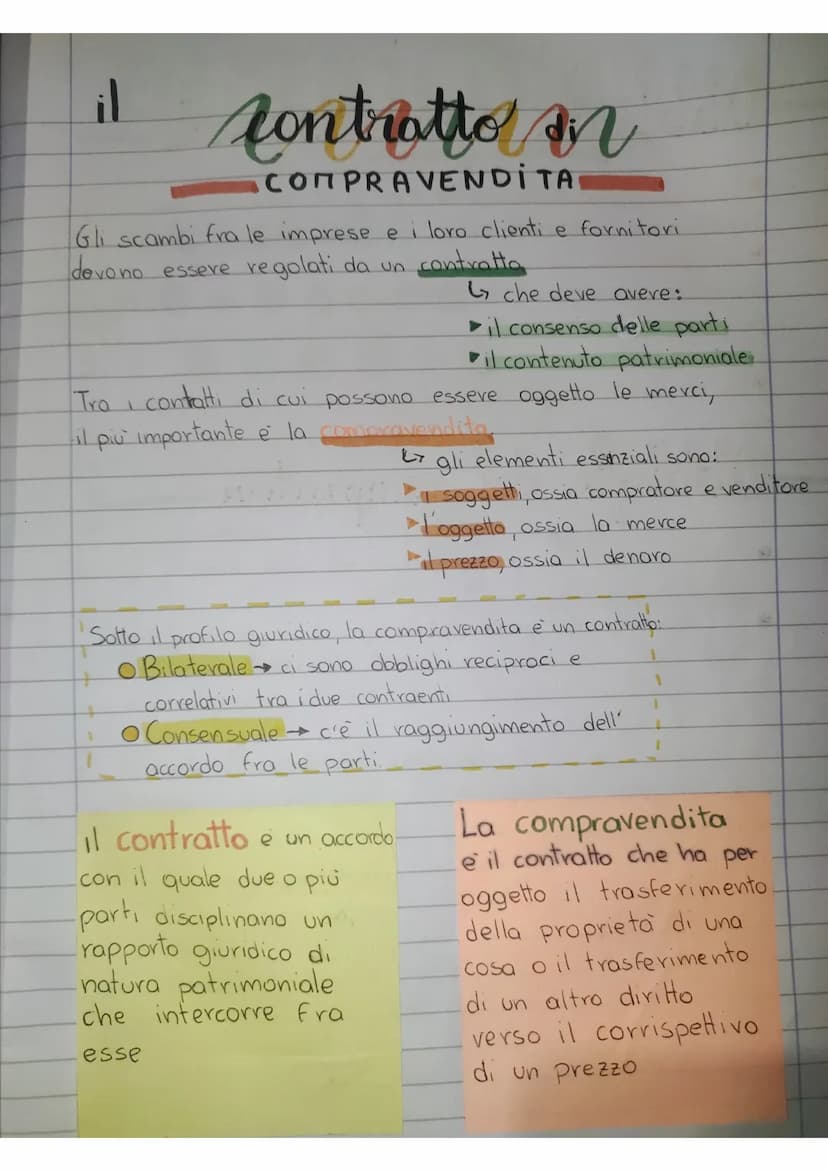 il contratto di
COMPRAVENDITA
Gli scambi fra le imprese e i loro clienti e fornitori
devono essere regolati da un contratto
↳ che deve avere:
▸ il consenso delle parti
▸ il contenuto patrimoniale
Tra i contatti di cui possono essere oggetto le merci,
il più importante è la compravendita
↳ gli elementi essenziali sono:
▸ i soggetti, ossia compratore e venditore
▸ l'oggetto, ossia la merce
▸ il prezzo, ossia il denaro
Sotto il profilo giuridico, la compravendita è un contratto:
Bilaterale → ci sono obblighi reciproci e
correlativi tra i due contraenti
Consensuale → c'è il raggiungimento dell'
accordo fra le parti.
il contratto è un accordo
con il quale due o più
parti disciplinano un
rapporto giuridico di
natura patrimoniale
che intercorre fra
esse
La compravendita
è il contratto che ha per
oggetto il trasferimento
della proprietà di una
cosa o il trasferimento
di un altro diritto
verso il corrispettivo
di un prezzo